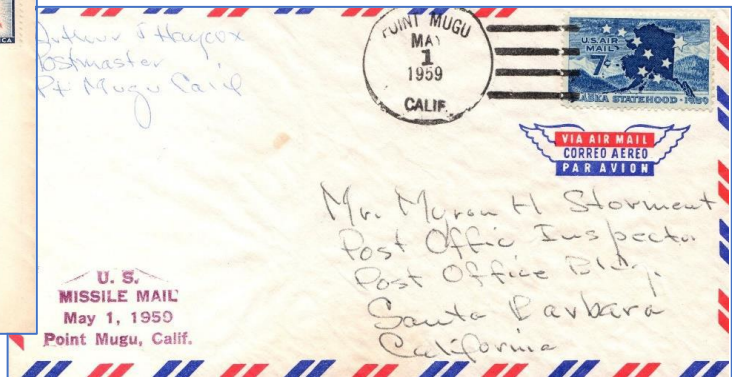 Arthur J Haycox
Postmaster
Pt Mugu Calif
POINT MUGU
MAY
1
1959
CALIF.
U.S. AIR
MAIL 7¢
ALASKA STATEHOOD · 1959
VIA AIR MAIL
CORREO AEREO
PAR AVION
Mr. Myron H Storment
Post Offic Inspector
Post Office Bldg.
Santa Barbara
California
U. S.
MISSILE MAIL
May 1, 1959
Point Mugu, Calif.